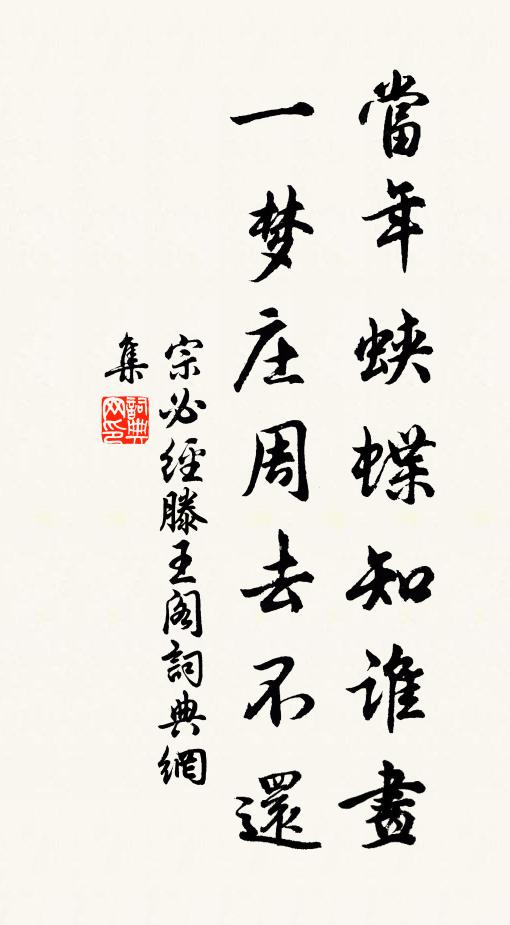 當年蛺蝶知誰畫
一梦庄周去不還
宗必經滕王阁詞典網
集
詞典網印